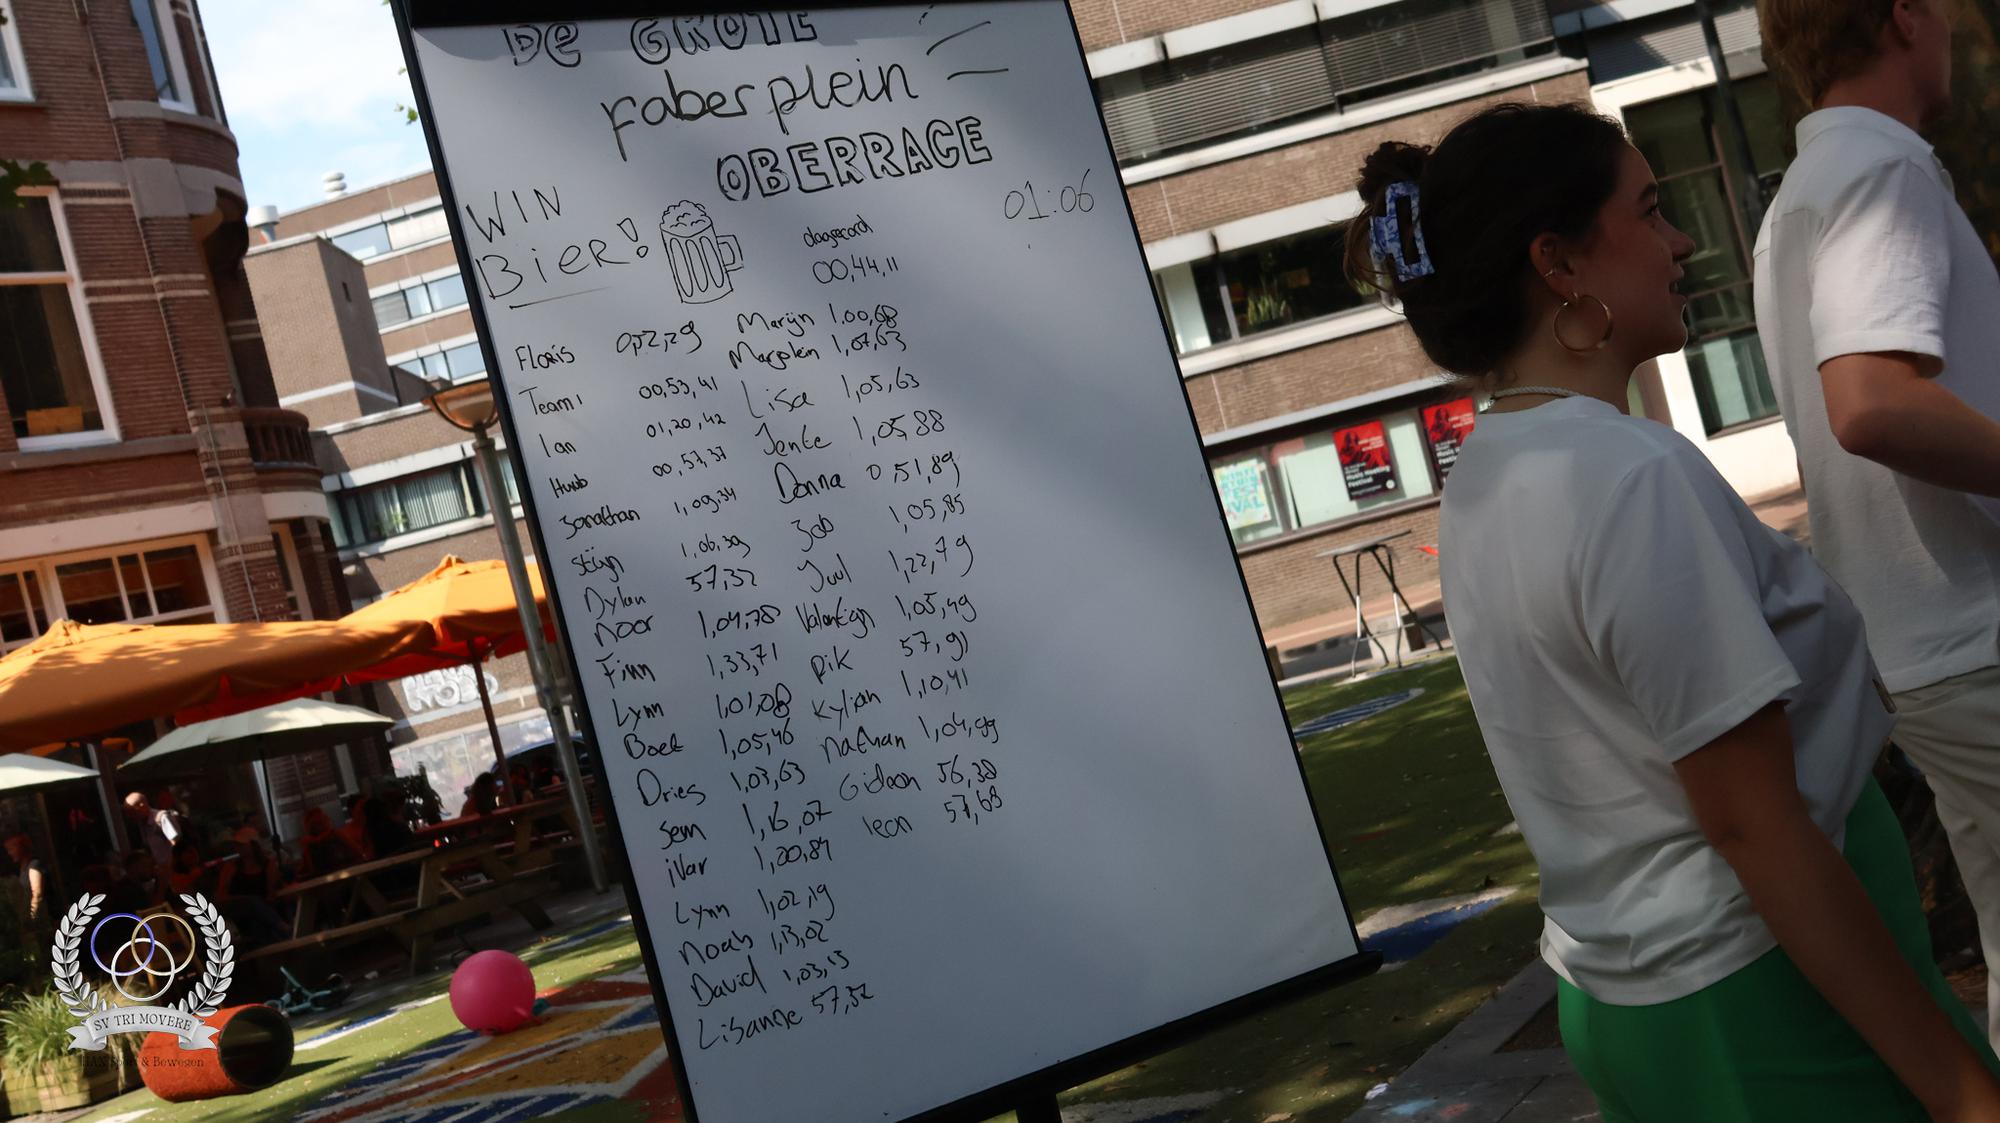 De GROTE
Faberplein
OBERRACE
WIN
BIER!
01:06
dagrecord
00,44,11
Floris 0,52,29
Team 1 00,53,41
Ian 01,20,42
Huub 00,57,37
Jonathan 1,09,34
Stijn 1,06,39
Dylan 57,32
Noor 1,04,78
Finn 1,33,71
Lynn 1,01,08
Boet 1,05,46
Dries 1,03,63
Sem 1,16,07
iVar 1,20,84
Lynn 1,02,19
Noah 1,13,02
David 1,03,13
Lisanne 57,52
Marijn 1,00,68
Marplein 1,07,63
Lisa 1,05,63
Jente 1,05,88
Donna 0,51,89
Job 1,05,85
Juul 1,22,79
Valentijn 1,05,49
Pik 57,91
Kylian 1,10,41
Nathan 1,04,99
Gideon 56,38
leon 57,68
Music Meeting
Festival
SV TRI MOVERE
HAN Sport & Bewegen